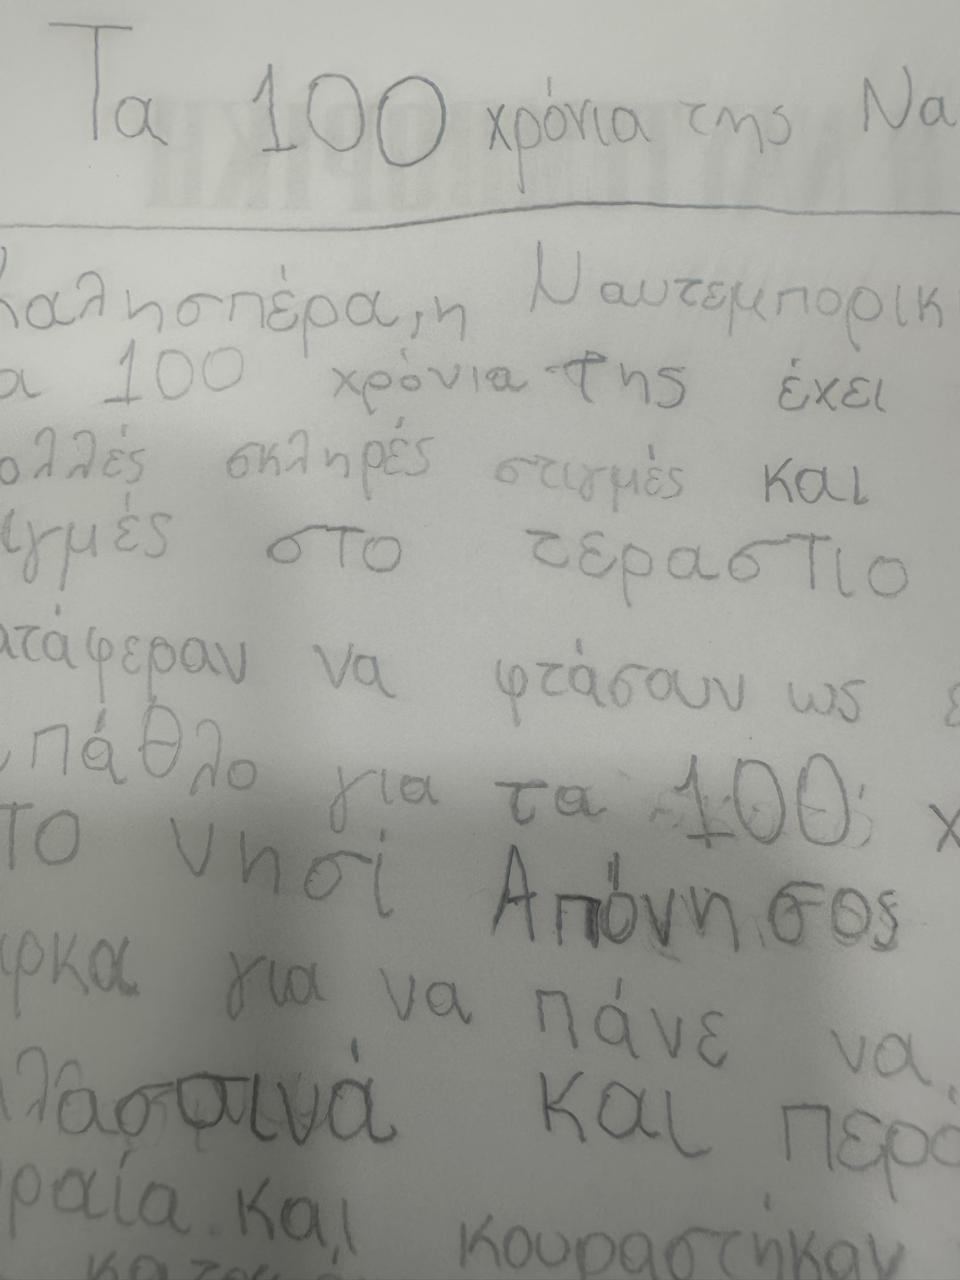 Τα 100 χρόνια της Να
Καλησπέρα, η Ναυτεμπορικ
α 100 χρόνια της έχει
ολλές σκληρές στιγμές και
ιγμές στο τεραστιο
ατάφεραν να φτάσουν ως ε
πάθλο για τα 100 χ
το νησί Απόνησος
ρκα για να πάνε να
λασσινά και περά
ραία και κουραστήκαν